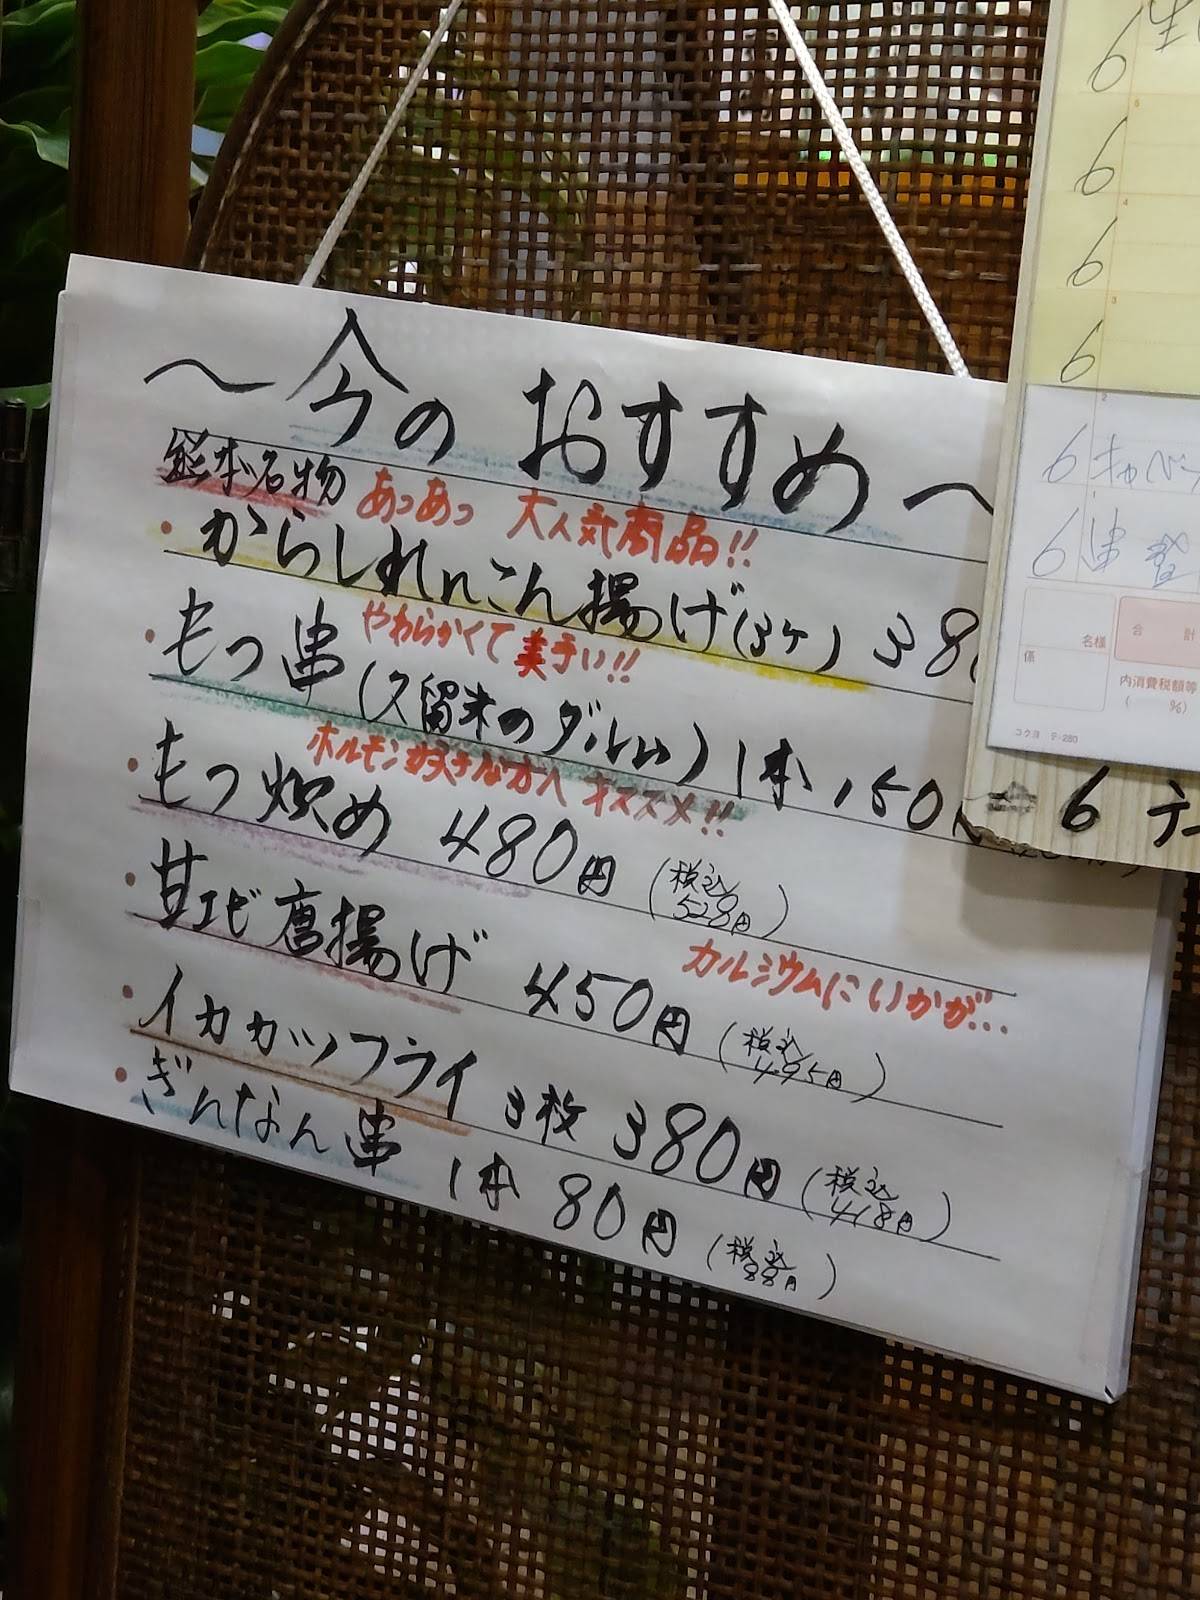 ～今のおすすめ～
熊本名物 あつあつ 大人気商品!!
・からしれんこん揚げ(3ケ) 38
やわらかくて美味い!!
・もつ串(久留米のダルム) 1本 150
ホルモン好きな方へオススメ!!
・もつ炒め 480円 (税込528円)
カルシウムにいかが…
・甘エビ唐揚げ 450円 (税込495円)
・イカカツフライ 3枚 380円 (税込418円)
・ぎんなん串 1本 80円 (税込88円)
6
6
6
6
6 キャベ
6 串
名様
係
合 計
内消費税額等
( %)
コクヨ テ-280
6 テ